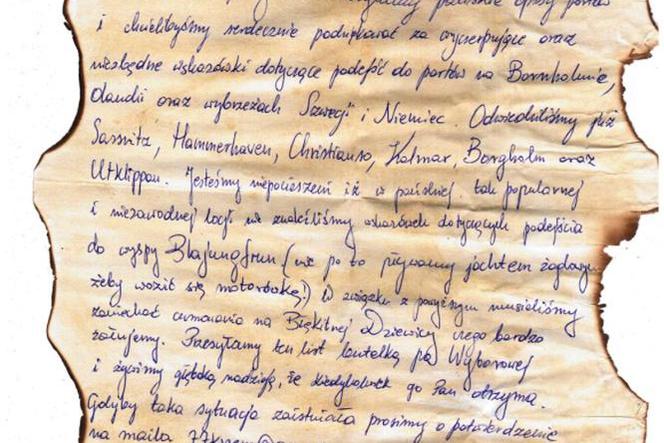 opisy portów
i chcielibyśmy serdecznie podziękować za wyczerpujące oraz
niezbędne wskazówki dotyczące podejść do portów na Bornholmie,
Olandii oraz wybrzeżach Szwecji i Niemiec. Odwiedziliśmy już
Sassnitz, Hammerhaven, Christianso, Kalmar, Borgholm oraz
Utklippan. Jesteśmy niepocieszeni iż w pańskiej, tak popularnej
i niezawodnej locji nie znaleźliśmy wskazówek dotyczących podejścia
do wyspy Blajungfrun (nie po to pływamy jachtem żaglowym
żeby wozić się motorówką!) W związku z powyższym musieliśmy
zaniechać cumowania na Błękitnej Dziewicy czego bardzo
żałujemy. Przesyłamy ten list butelką po Wyborowej
i żywimy głęboką nadzieję, że kiedykolwiek go Pan otrzyma.
Gdyby taka sytuacja zaistniała prosimy o potwierdzenie
na maila